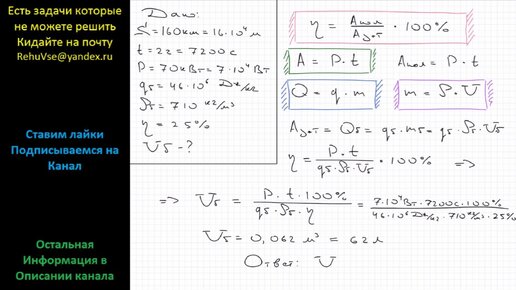 Есть задачи которые
не можете решить
Кидайте на почту
RehuVse@yandex.ru
Ставим лайки
Подписываемся на
Канал
Остальная
Информация в
Описании канала
Дано:
S = 160км = 16·10⁴ м
t = 2ч = 7200с
P = 70кВт = 7·10⁴ Вт
qб = 46·10⁶ Дж/кг
ρб = 710 кг/м³
η = 25%
Uб - ?
η = Aпол / Aзат · 100%
A = P·t
Aпол = P·t
Q = q·m
m = ρ·U
Aзат = Qб = qб·mб = qб·ρб·Uб
η = P·t / qб·ρб·Uб · 100% =>
=> Uб = P·t·100% / qб·ρб·η = 7·10⁴Вт·7200с·100% / 46·10⁶Дж/кг·710кг/м³·25%
Uб = 0,062 м³ = 62л
Ответ: U